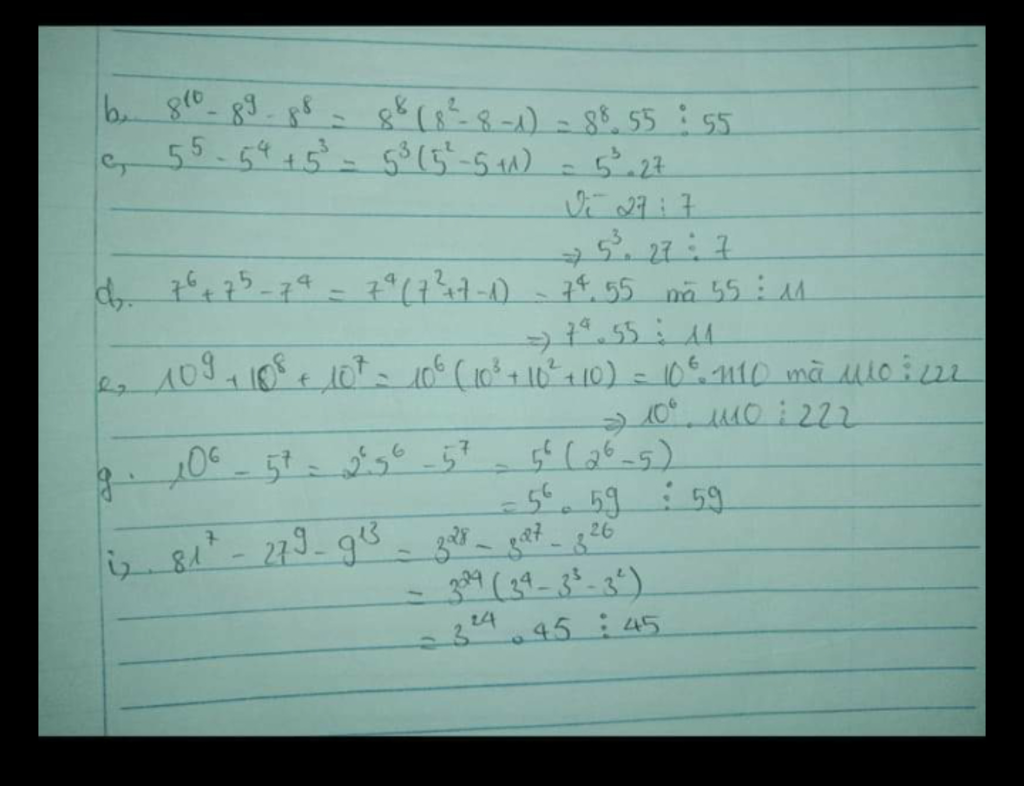 b, 8¹⁰ - 8⁹ - 8⁸ = 8⁸(8² - 8 - 1) = 8⁸.55 ⋮ 55
c, 5⁵ - 5⁴ + 5³ = 5³(5² - 5 + 1) = 5³.27
Vì 27 ⋮ 7
=> 5³. 27 ⋮ 7
d, 7⁶ + 7⁵ - 7⁴ = 7⁴(7² + 7 - 1) = 7⁴.55 mà 55 ⋮ 11
=> 7⁴.55 ⋮ 11
e, 10⁹ + 10⁸ + 10⁷ = 10⁶(10³ + 10² + 10) = 10⁶.1110 mà 1110 ⋮ 222
=> 10⁶. 1110 ⋮ 222
g. 10⁶ - 5⁷ = 2⁶.5⁶ - 5⁷ = 5⁶(2⁶ - 5)
= 5⁶. 59 ⋮ 59
i, 81⁷ - 27⁹ - 9¹³ = 3²⁸ - 3²⁷ - 3²⁶
= 3²⁴(3⁴ - 3³ - 3²)
= 3²⁴.45 ⋮ 45